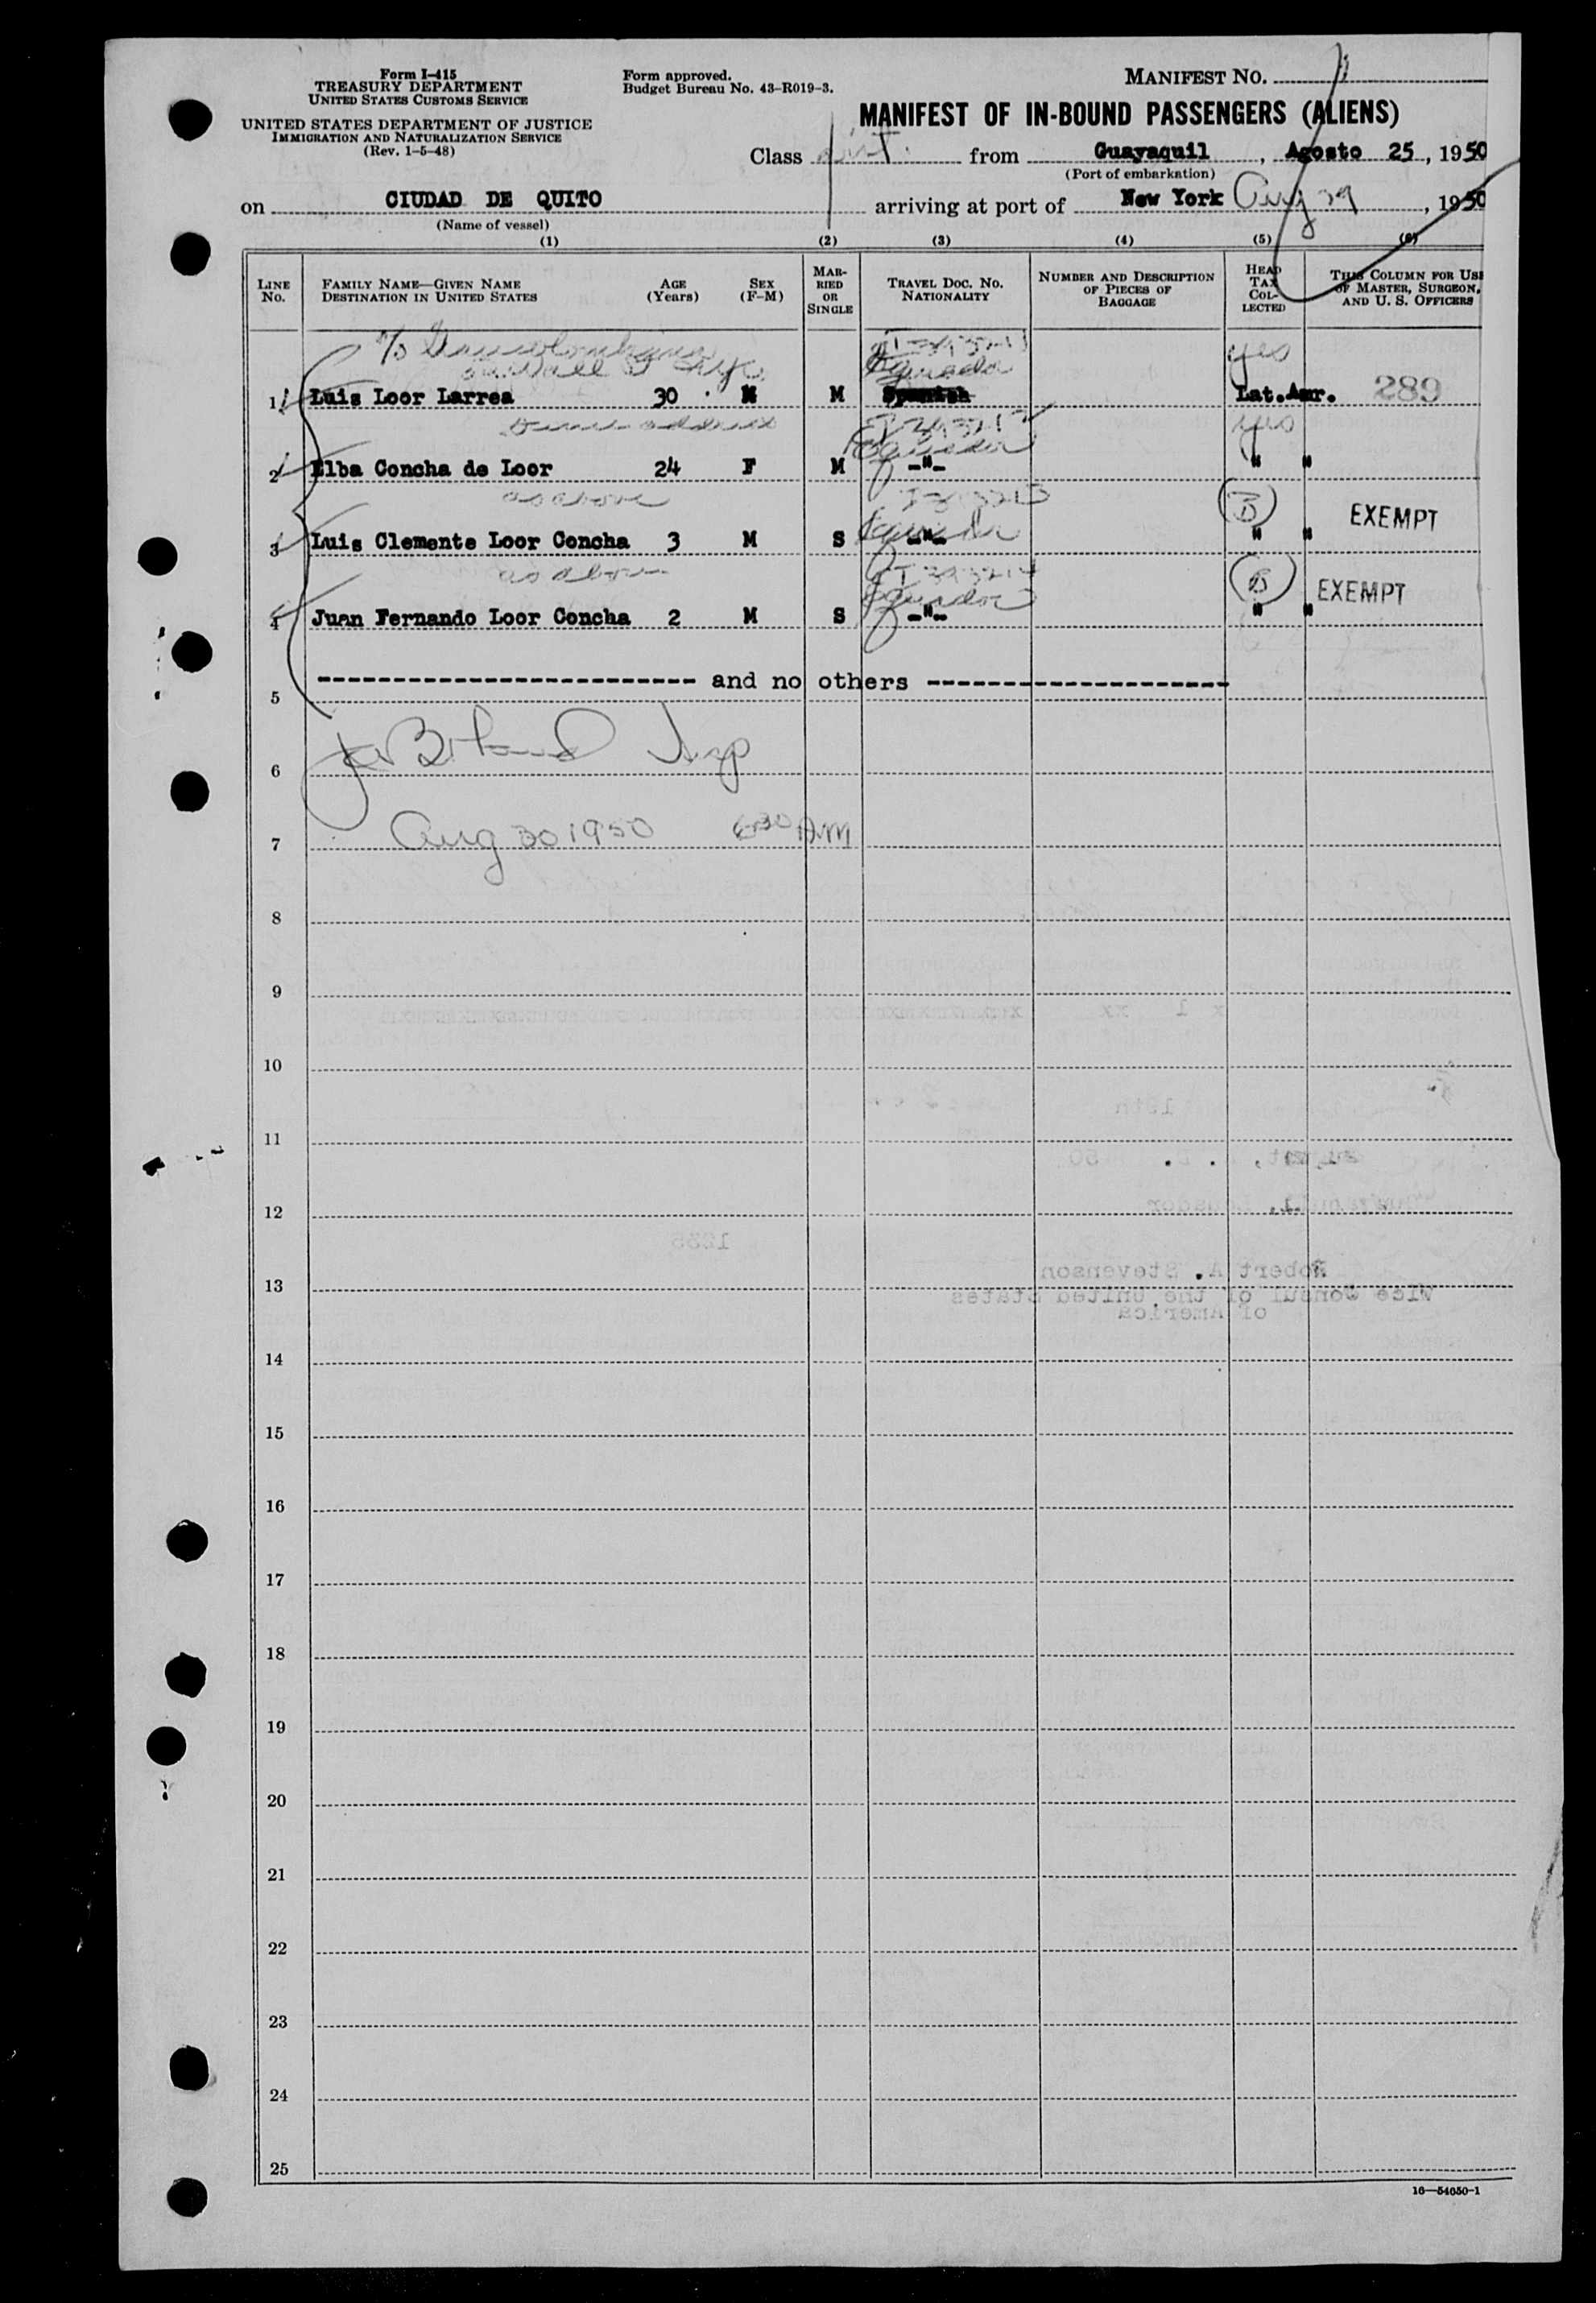 Form I-415
TREASURY DEPARTMENT
UNITED STATES CUSTOMS SERVICE
UNITED STATES DEPARTMENT OF JUSTICE
IMMIGRATION AND NATURALIZATION SERVICE
(Rev. 1-5-48)
Form approved.
Budget Bureau No. 43-R019-3.
MANIFEST NO.
MANIFEST OF IN-BOUND PASSENGERS (ALIENS)
Class from Guayaquil, Agosto 25, 1950
(Port of embarkation)
on CIUDAD DE QUITO arriving at port of New York Aug 29, 1950
(Name of vessel)
(1) (2) (3) (4) (5) (6)
LINE NO.
FAMILY NAME—GIVEN NAME
DESTINATION IN UNITED STATES
AGE (Years)
SEX (F-M)
MARRIED OR SINGLE
TRAVEL DOC. NO.
NATIONALITY
NUMBER AND DESCRIPTION OF PIECES OF BAGGAGE
HEAD TAX COLLECTED
THIS COLUMN FOR USE
OF MASTER, SURGEON,
AND U. S. OFFICERS
yes
1 Luis Loor Larrea 30 M M Spanish Lat.Amr. 289
same address yes
2 Elba Concha de Loor 24 F M -"- " "
as above B EXEMPT
3 Luis Clemente Loor Concha 3 M S -"- " "
as above B EXEMPT
4 Juan Fernando Loor Concha 2 M S -"- " "
5 ------------------------- and no others --------------------
6
7 Aug 30 1950 6:30 AM
8
9
10
11
12
13
14
15
16
17
18
19
20
21
22
23
24
25
16—54650-1